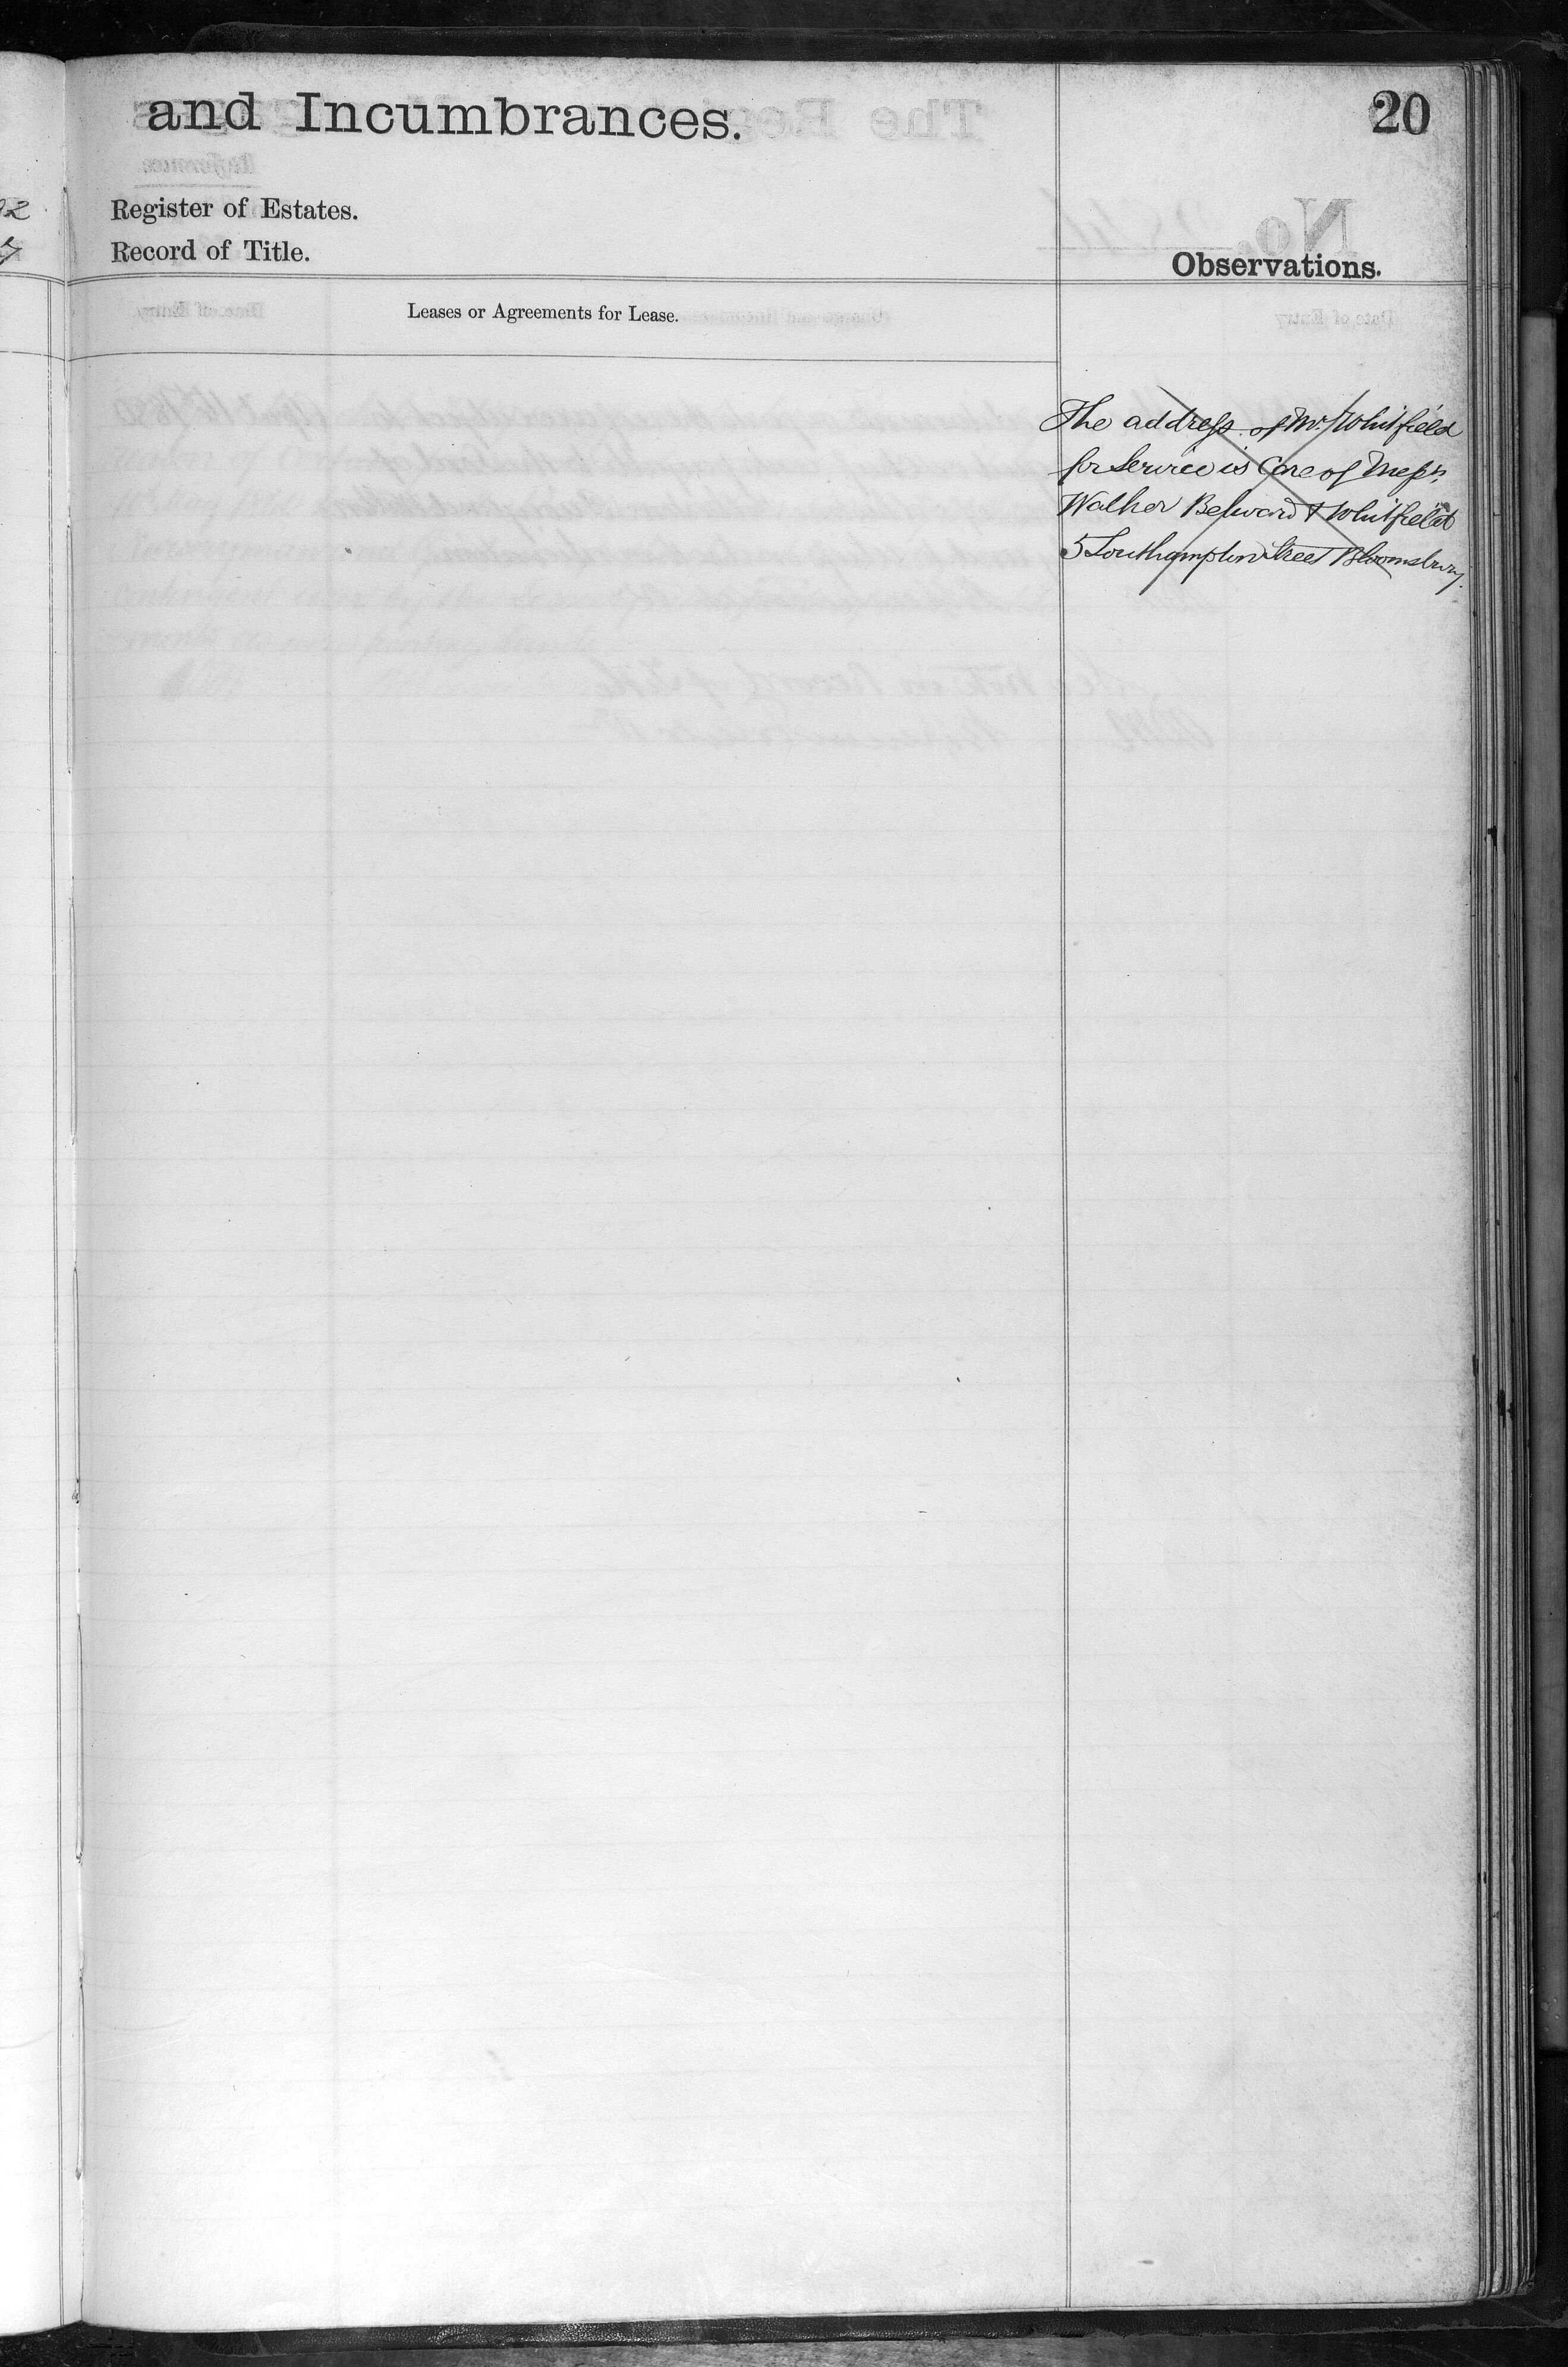 and Incumbrances.
20
Register of Estates.
Record of Title.
Observations.
Leases or Agreements for Lease.
The address of Mr. Whitfield
for Service is Care of Mess.rs
Walker Belward & Whitfield
5 Southampton Street Bloomsbury.